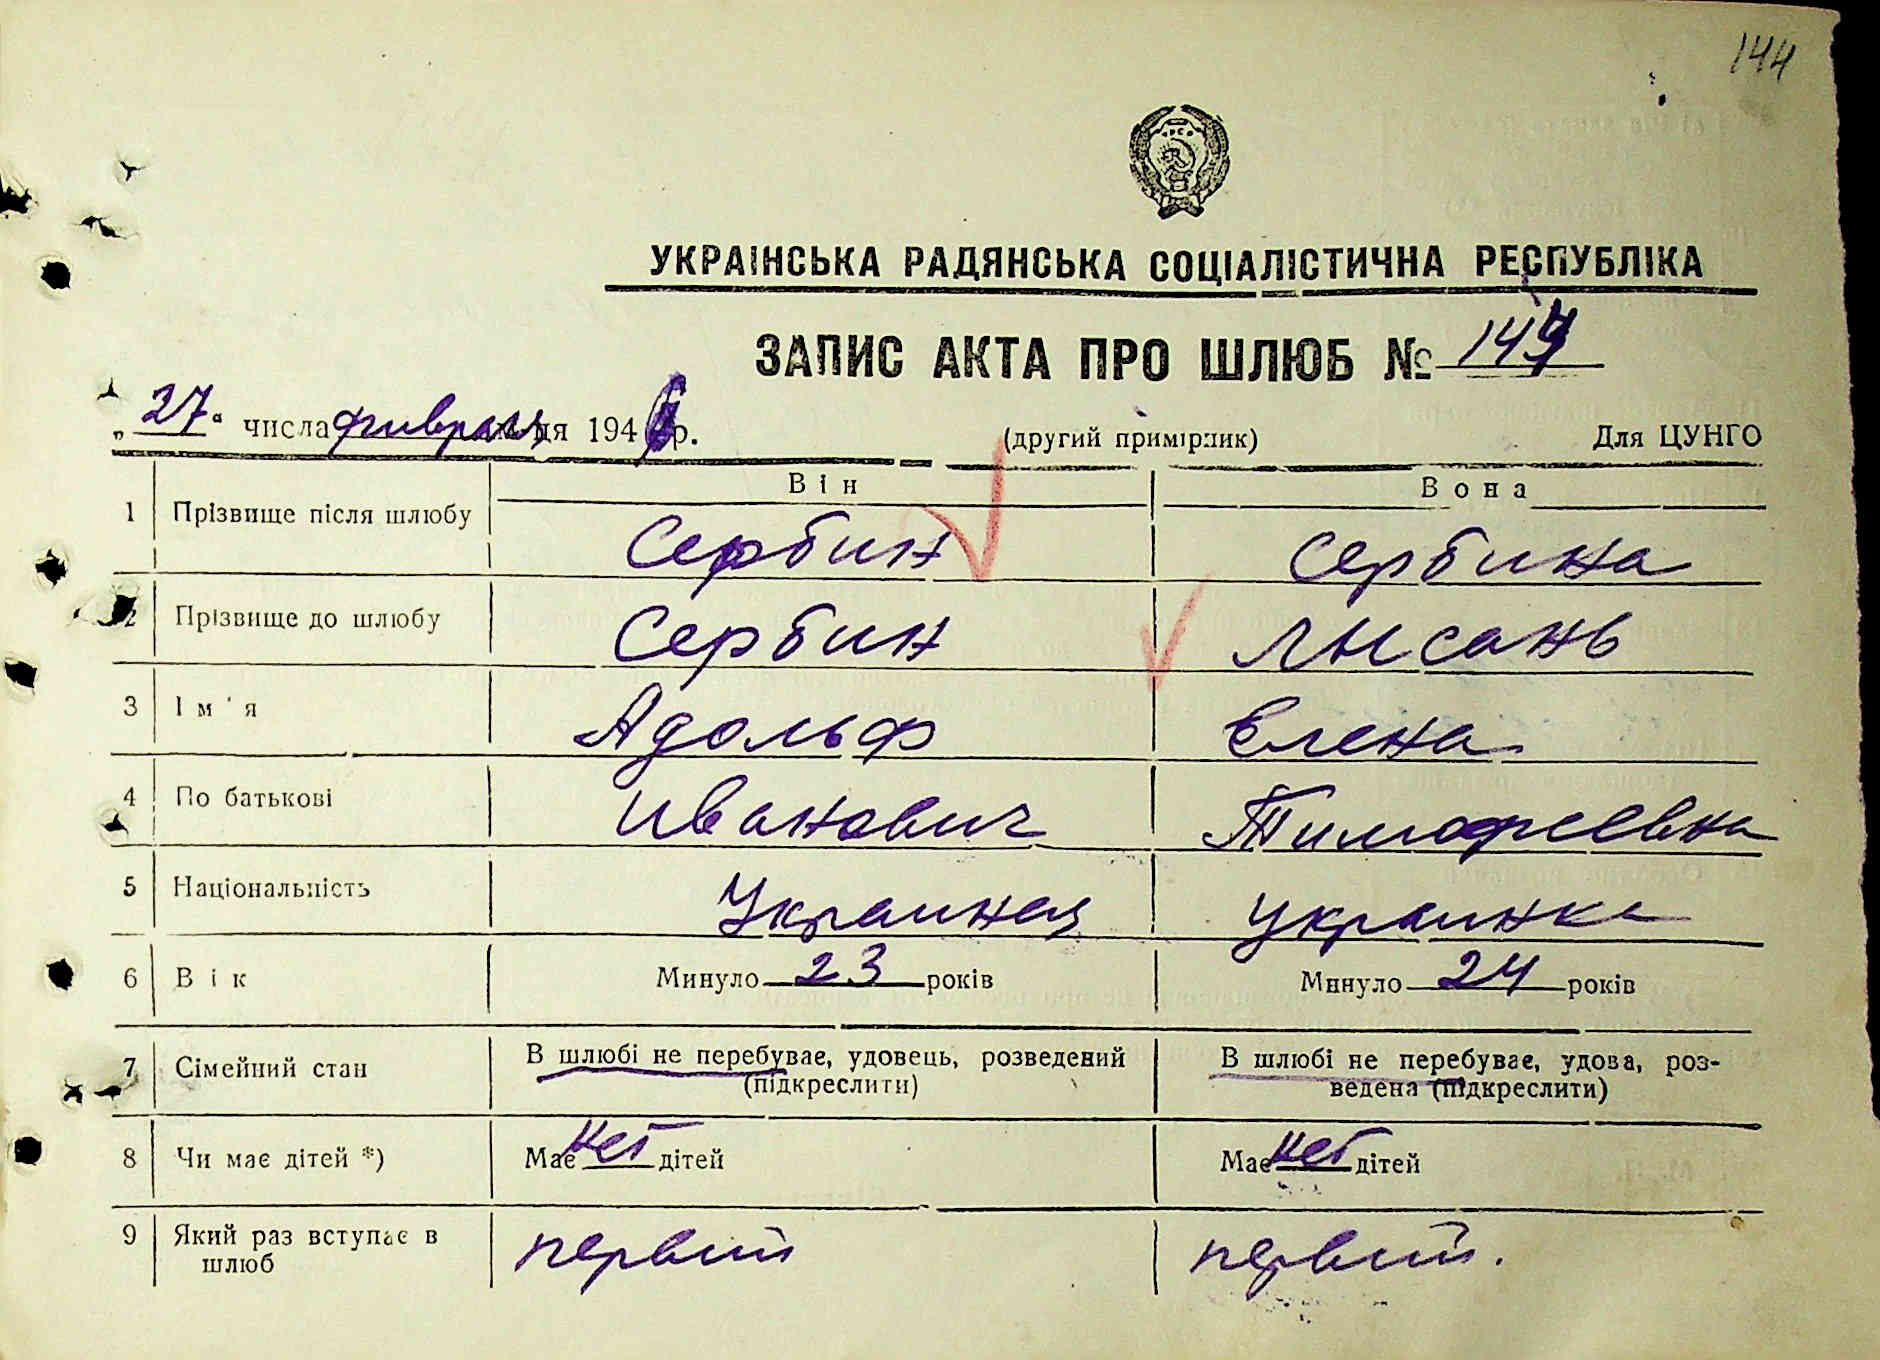 144
УКРАЇНСЬКА РАДЯНСЬКА СОЦІАЛІСТИЧНА РЕСПУБЛІКА
ЗАПИС АКТА ПРО ШЛЮБ № 147
„27“ числа февраль м-ця 194 р.
(другий примірник)
Для ЦУНГО
Він Вона
1 Прізвище після шлюбу Сербин Сербина
2 Прізвище до шлюбу Сербин Лысань
3 Ім'я Адольф Елена
4 По батькові Иванович Тимофеевна
5 Національність Украинец украинка
6 Вік Минуло 23 років Минуло 24 років
7 Сімейний стан В шлюбі не перебуває, удовець, розведений В шлюбі не перебуває, удова, роз-
(підкреслити) ведена (підкреслити)
8 Чи має дітей *) Має нет дітей Має нет дітей
9 Який раз вступає в первый первый.
шлюб